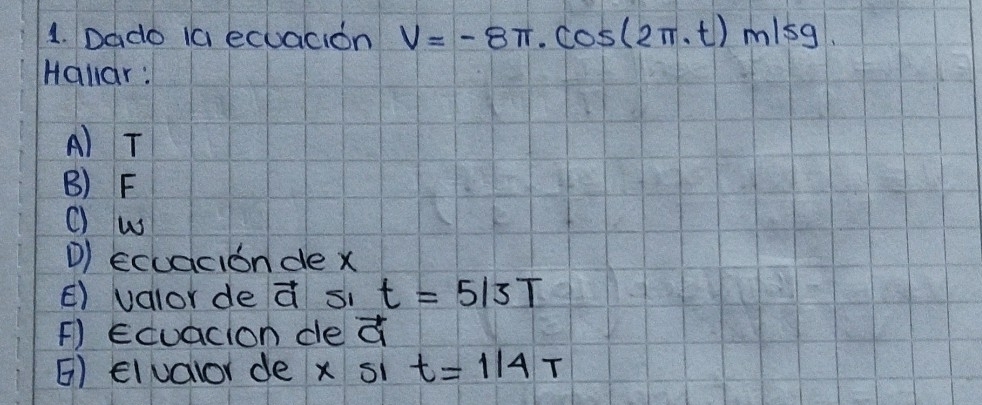 1. Dado la ecuación V = -8π. cos(2π.t) m/sg.
Hallar:
A) T
B) F
C) w
D) Ecuación de x
E) valor de a⃗ si t = 5/3 T
F) Ecuacion de a⃗
G) El valor de x si t = 1/4 T